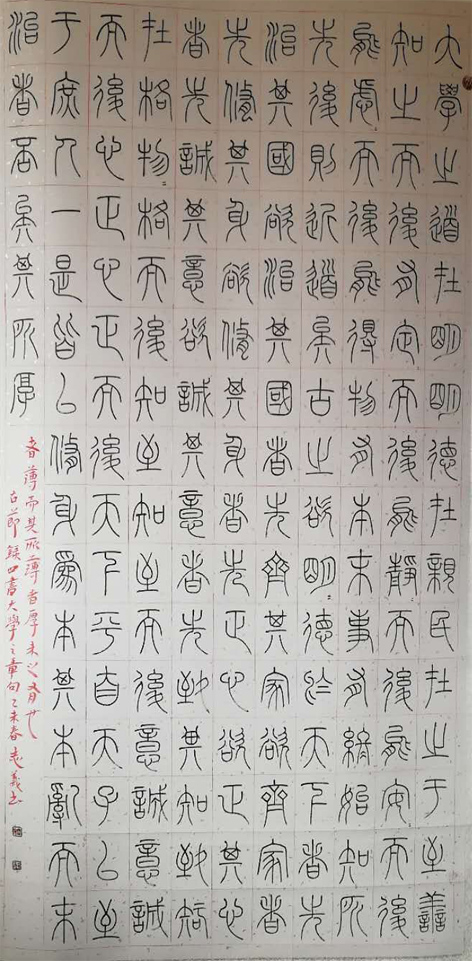 大學之道在明明德在親民在止于至善
知止而後有定而後能靜而後能安而後
能慮〻而後能得物有本末事有終始知所
先後則近道矣古之欲明〻德於天下者先
治其國欲治其國者先齊其家欲齊家者
先修其身欲修其身者先正心欲正其心
者先誠其意欲誠其意者先致其知致知
在格物〻格而後知至知至而後意誠意誠
而後心正心正而後天下平自天子以至
于庶人一是皆以修身為本其本亂而末
治者否矣其所厚
者薄而其所薄者厚未之有也
右節錄四書大學之章句乙未春志義書